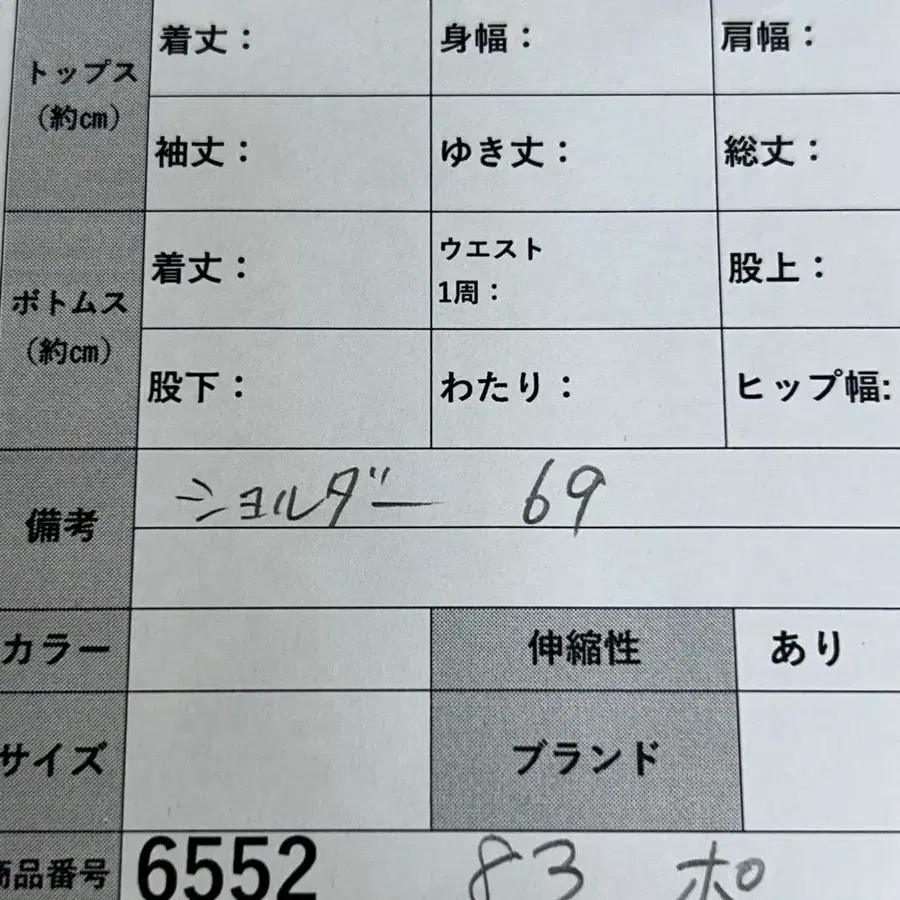 トップス
(約㎝)
着丈： 身幅： 肩幅：
袖丈： ゆき丈： 総丈：
ボトムス
(約㎝)
着丈： ウエスト
1周： 股上：
股下： わたり： ヒップ幅:
備考 ショルダー 69
カラー 伸縮性 あり
サイズ ブランド
商品番号 6552 83 ポ